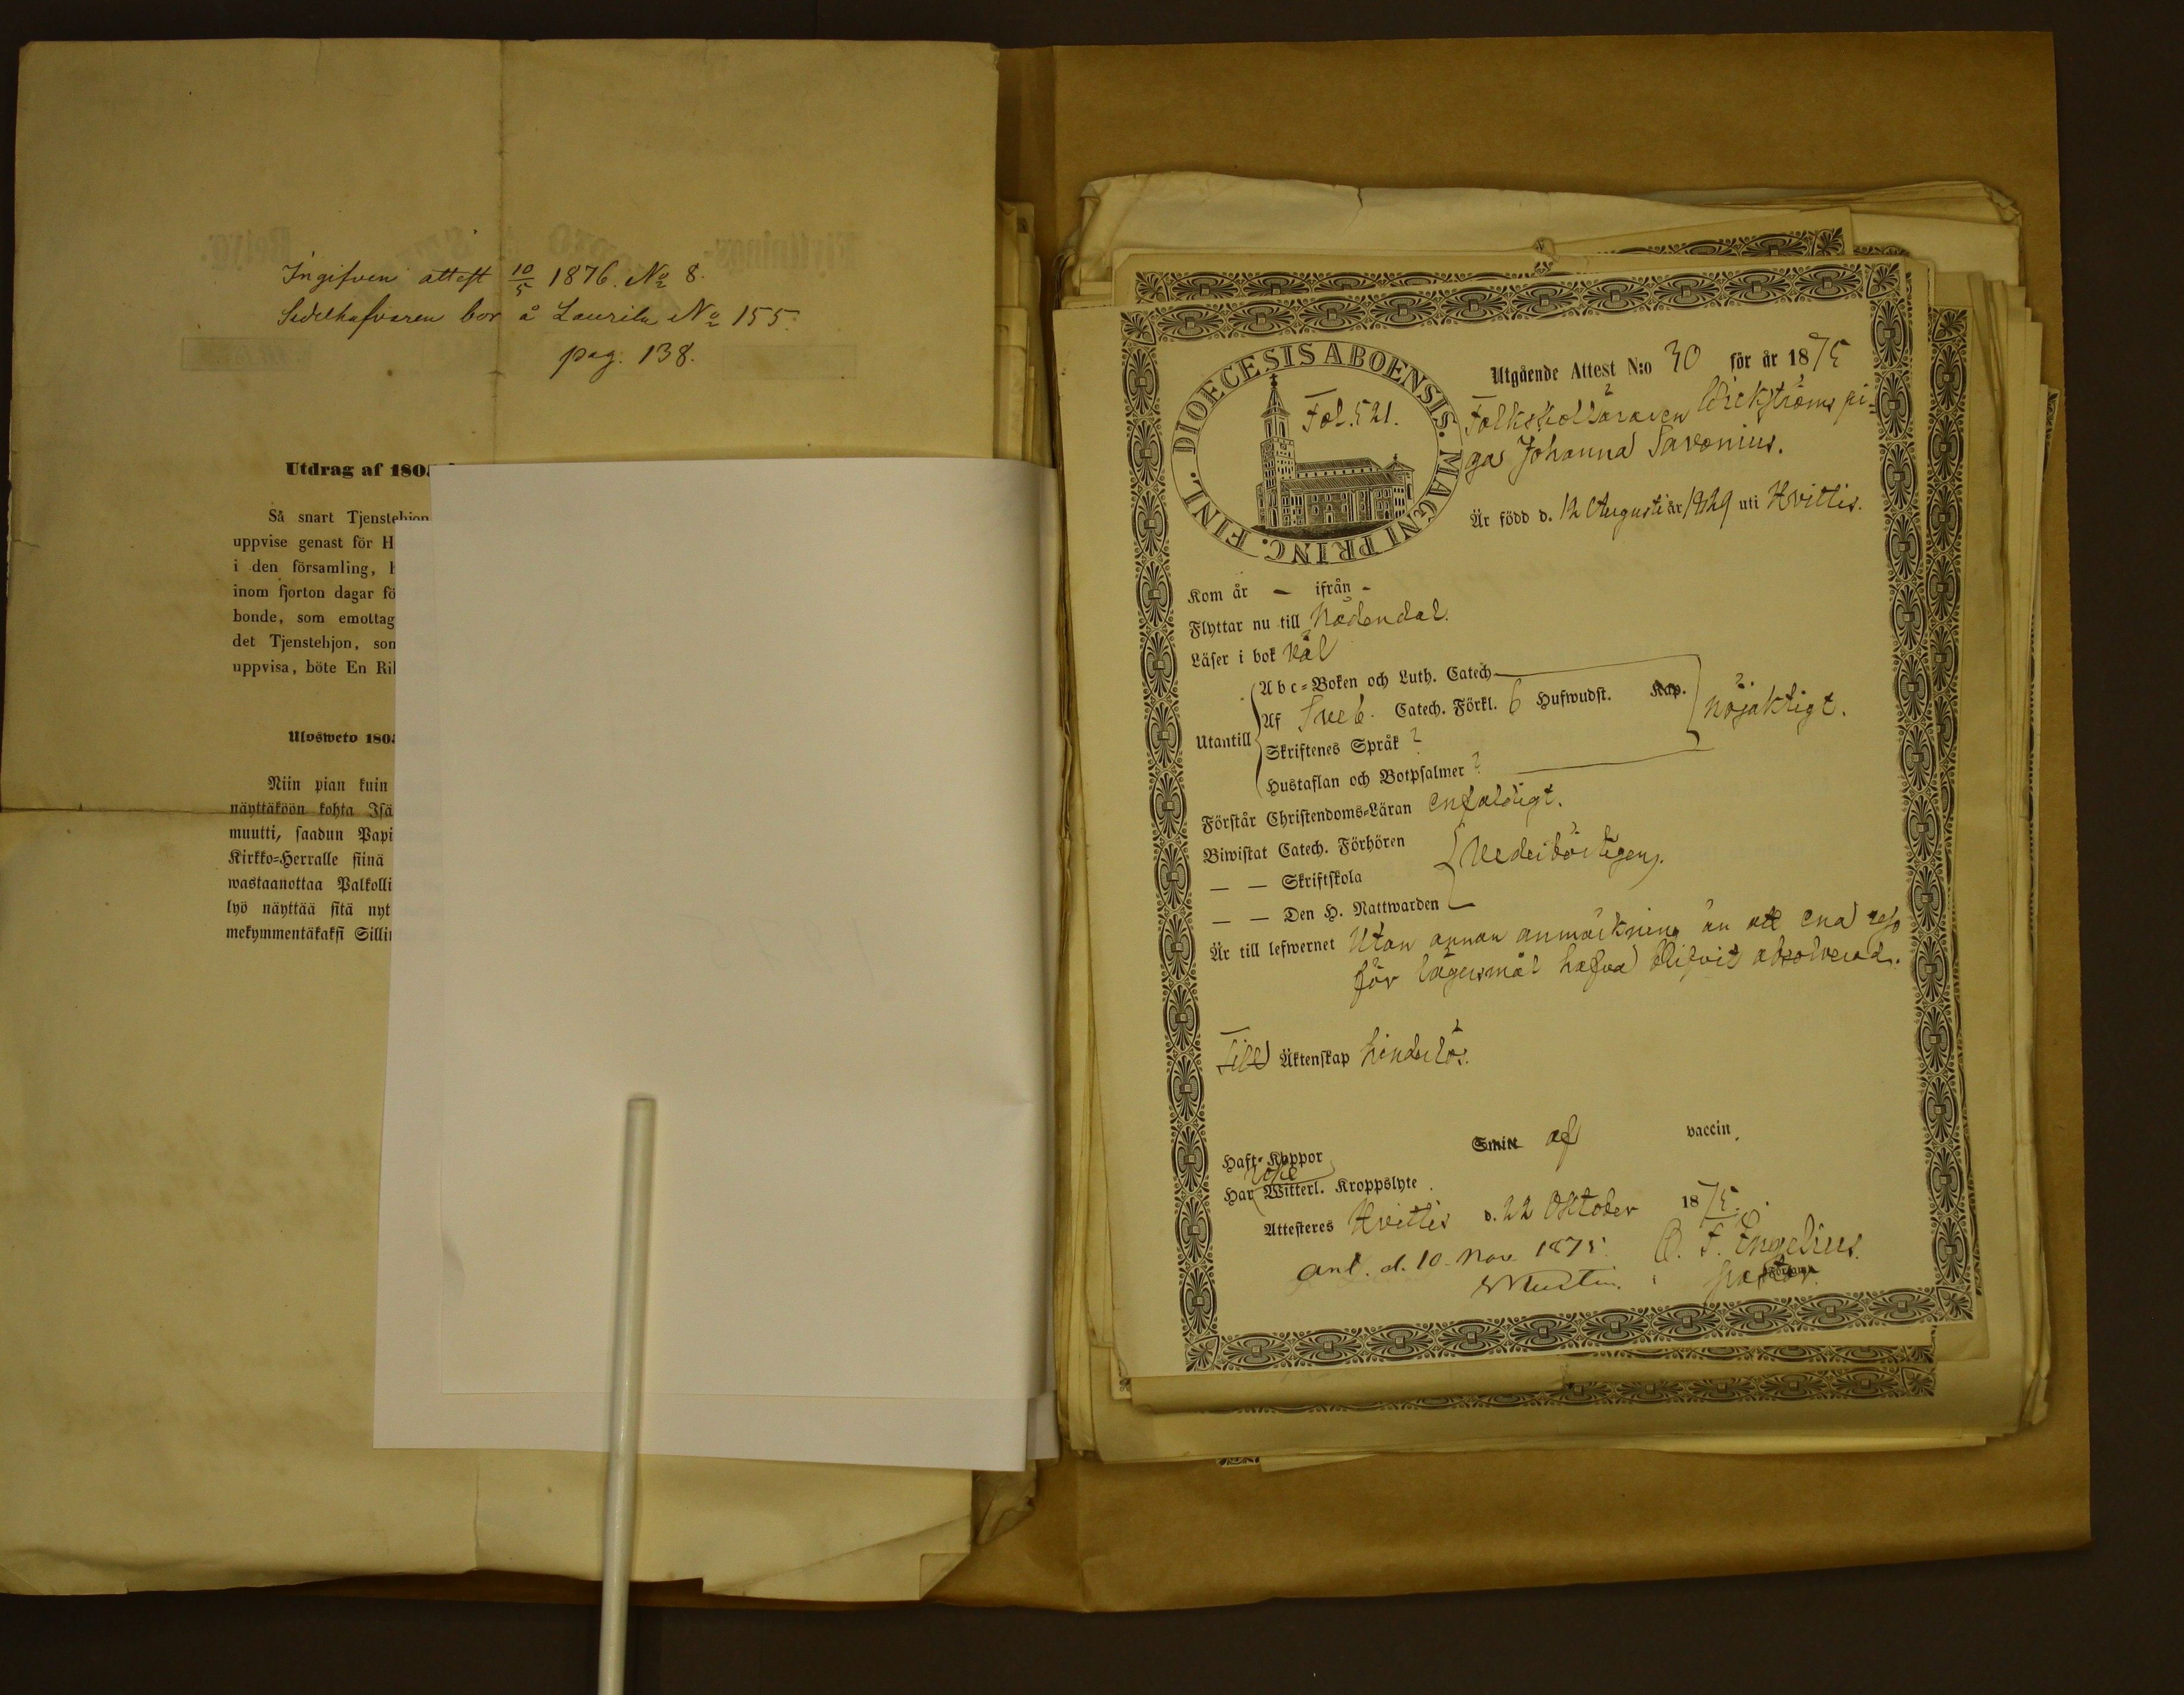 Ingifven attest 10/5 1876. No 8.
Sedelhafvaren bor å Laurila No 155.
pag. 138.
Utdrag af 180
Så snart Tjenstehjon
uppvise genast för H
i den församling, h
inom fjorton dagar fö
bonde, som emottag
det Tjenstehjon, som
uppvisa, böte En Ri
Ulosweto 180
Niin pian kuin
näyttäköön kohta Isä
muutti, saadun Papi
Kirkko-Herralle siinä
wastaanottaa Palkolli
lyö näyttää sitä nyt
mekymmentäkaksi Silli
DIOECESIS ABOENSIS. MAGNI PRINC. FINL.
Fol. 521.
Utgående Attest N:o 30 för år 1875
Folkskolläraren Wickströms pi-
ga Johanna Savonius.
Är född d. 12 Augusti år 1829 uti Hvittis.
Kom år - ifrån -
Flyttar nu till Nådendal.
Läser i bok väl
Utantill
Abc-Boken och Luth. Catech
Af Sveb. Catech. Förkl. 6 Hufwudst. Kap.
nöjaktigt.
Skriftenes Språk ?
Hustaflan och Botpsalmer ?
Förstår Christendoms-Läran enfaldigt.
Biwistat Catech. Förhören
— — Skriftskola
vederbörligen.
— — Den H. Nattwarden
Är till lefwernet Utan annan anmärkning än att ena resa
för lägersmål hafva blifvit absolverad.
Till Äktenskap hinderlös.
Haft Koppor Smitt af vaccin.
Har icke Witterl. Kroppslyte.
Attesteres Hvittis d. 22 Oktober 1875.
C. F. Engelius.
pastor.
Ant. d. 10 Nov 1875.